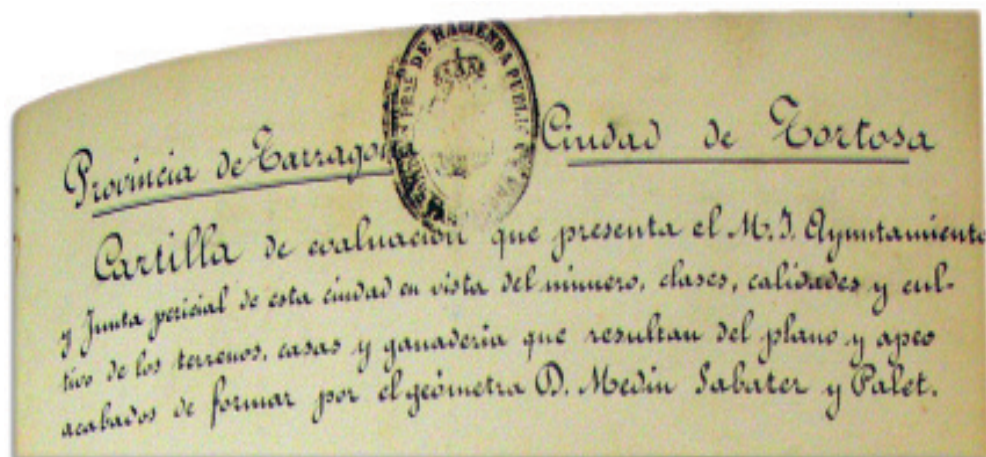 Provincia de Tarragona Ciudad de Tortosa
DE HACIENDA PUBLIC
Cartilla de evaluación que presenta el M. I. Ayuntamiento
y Junta pericial de esta ciudad en vista del número, clases, calidades y cul-
tivo de los terrenos, casas y ganadería que resultan del plano y apeo
acabados de formar por el geómetra D. Medin Sabater y Palet.